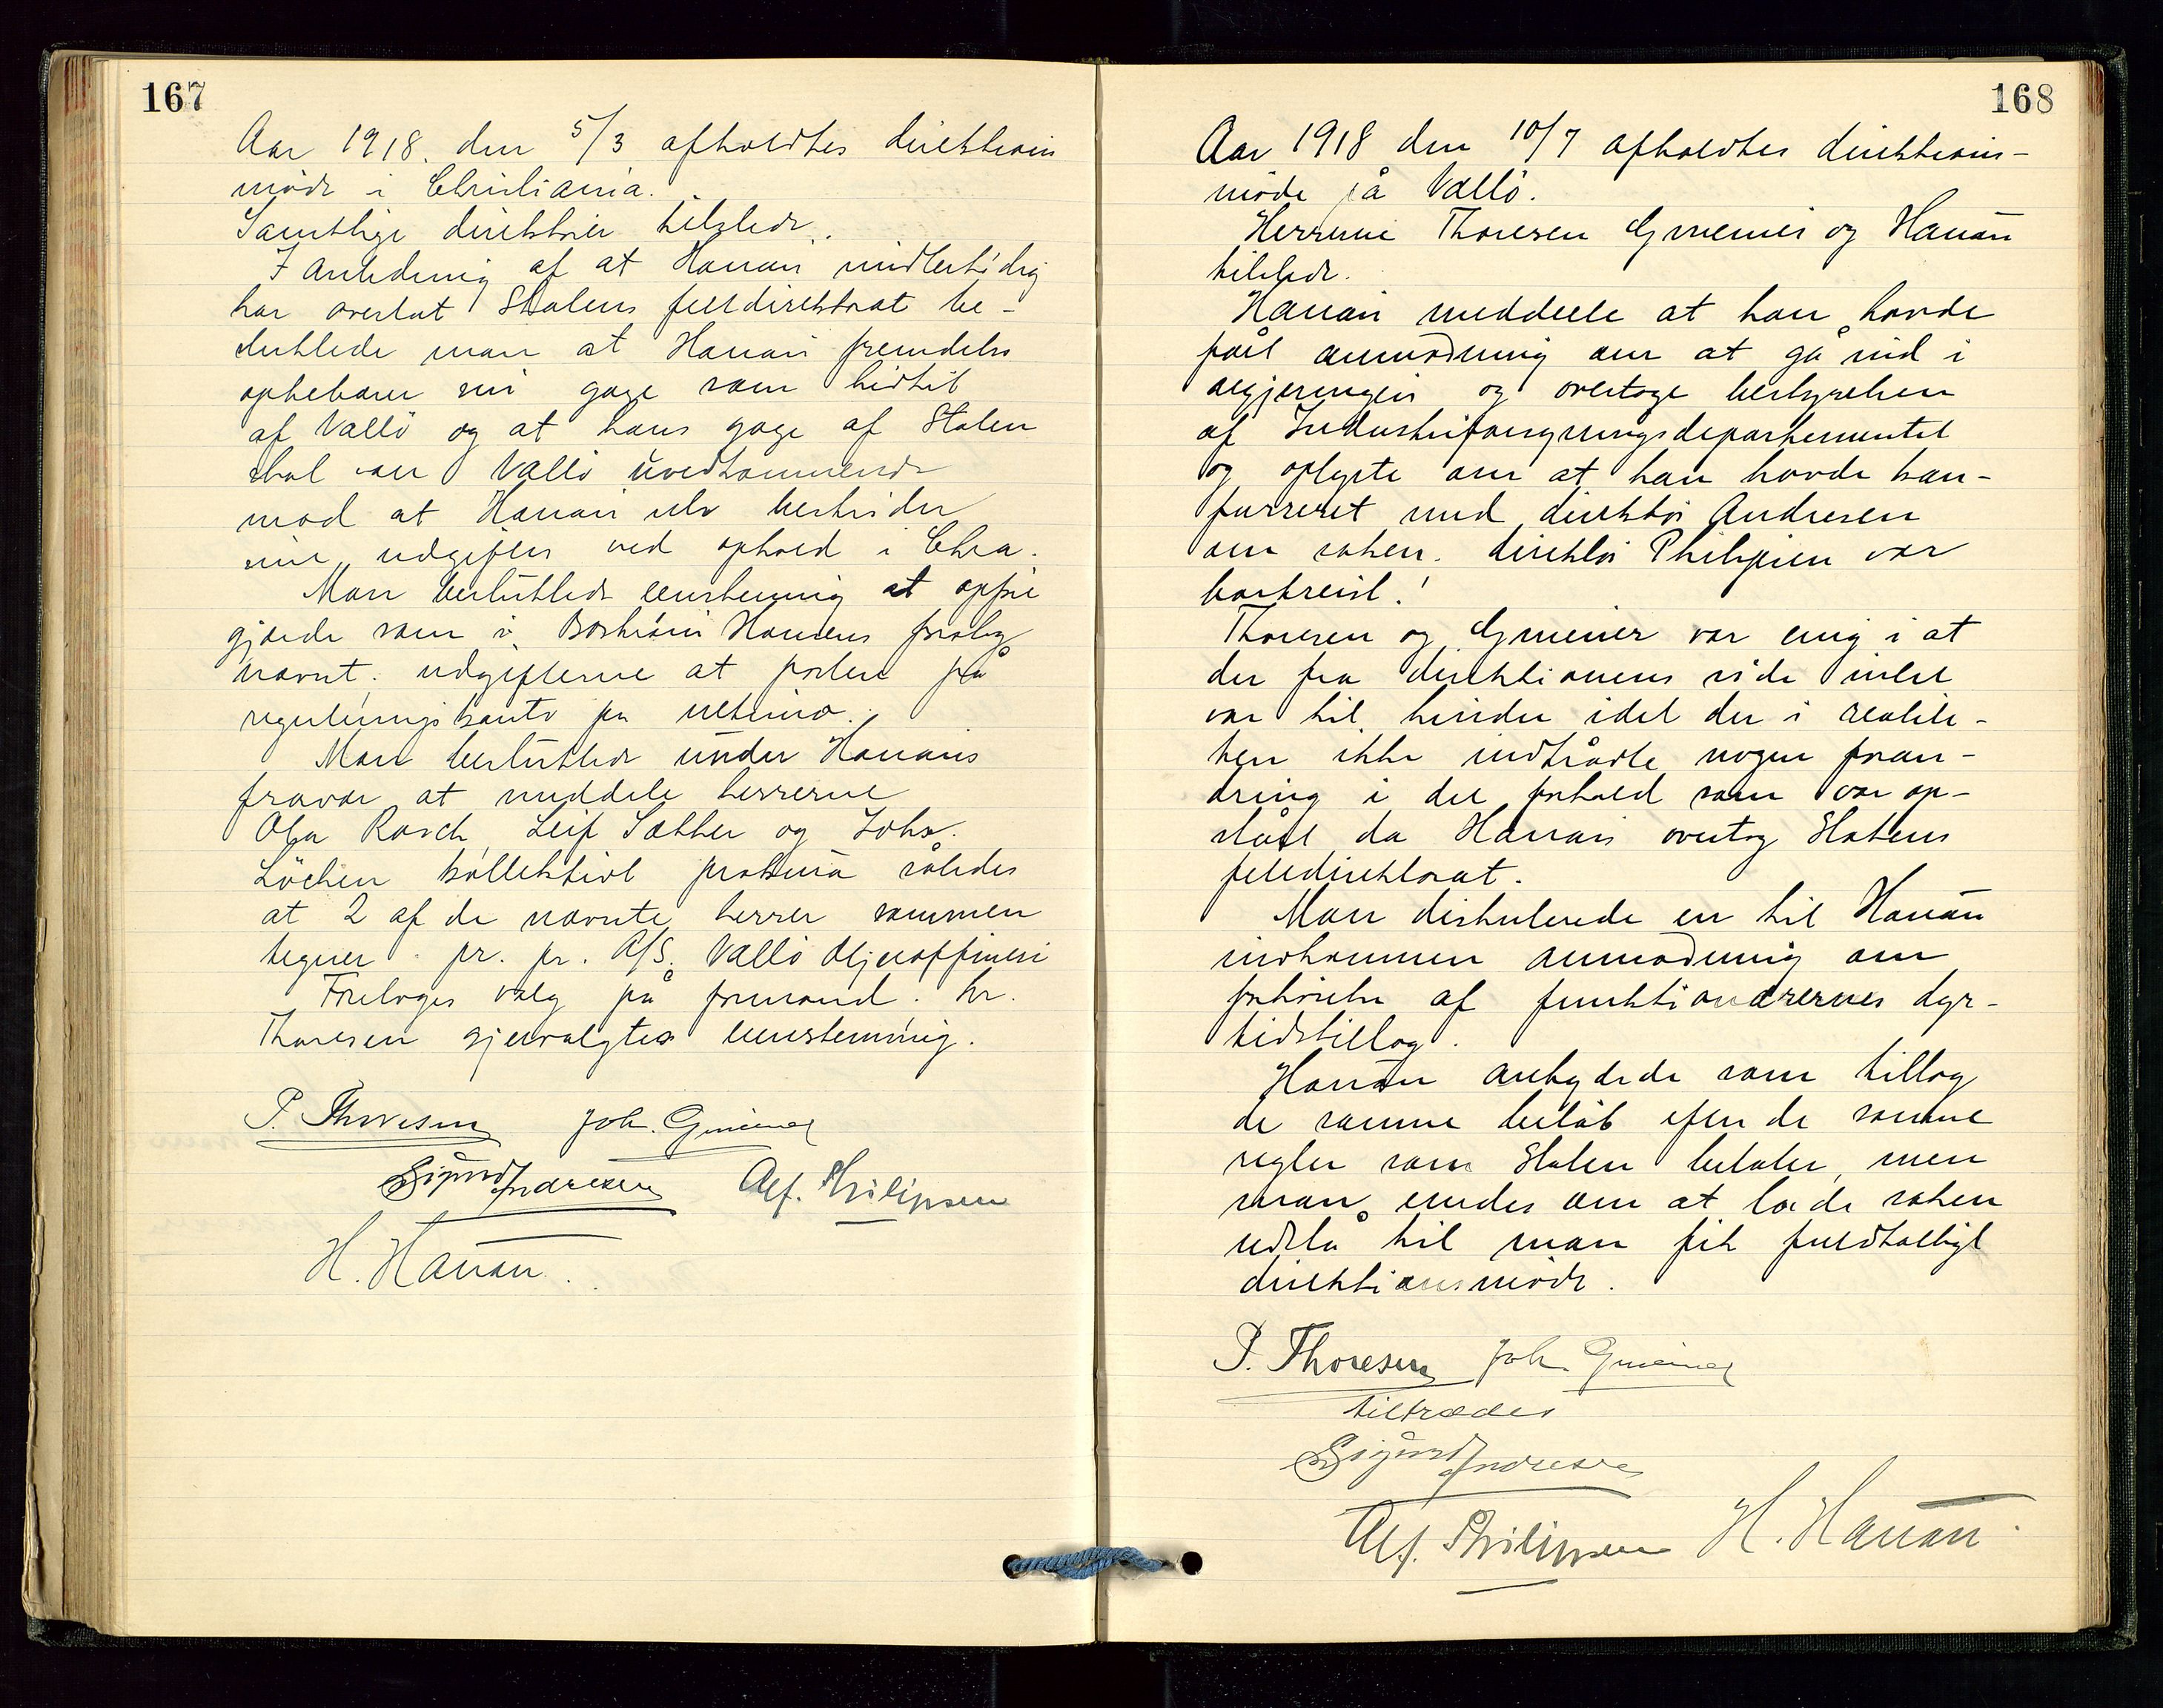 167
Aar 1918. den 5/3 afholdtes direktions
möde i Christiania.
Samtlige direktörer tilstede.
I Anledning af at Hanan midlertidig
har overtat Statens feltdirektorat be-
sluttede man at Hanan fremdeles
oppebærer sin gage som hidtil
af Vallö og at hans gage af Staten
skal være Vallö uvedkommende
mod at Hanan selv bestrider
sine udgifter ved ophold i Chra.
Man besluttede eenstemmig at opfri
gjærde som i Hansens forslag
nævnt. udgifterne at postere på
reguleringskonto pr ultimo.
Man besluttede under Hanans
fravær at meddele herrerne
Olga Rasch, Leif Sæther og Johs.
Löchen kollektivt prokura således
at 2 af de nævnte herrer sammen
tegner pr. pr. A/S. Vallö Oljeraffineri
Foretoges valg på formand. hr.
Thoresen gjenvalgtes eenstemmig.
P. Thoresen Joh. Gmeiner
Sigurd Andresen Alf. Philipsen
H. Hanan.
168
Aar 1918 den 10/7 afholdtes direktions-
möde på Vallö.
Herrene Thoresen Gmeiner og Hanan
tilstede.
Hanan meddelte at han havde
fået anmodning om at gå ind i
regjeringen og overtage bestyrelsen
af Industriforsyningsdepartementet
og oplyste om at han havde kon-
fureret med direktör Andresen
om saken. direktör Philipsen var
bortreist!
Thoresen og Gmeiner var enig i at
der fra direktionens side intet
var til hinder idet der i realite-
ten ikke indtrådte nogen foran-
dring i det forhold som var op-
stået da Hanan overtog Statens
feltdirektorat.
Man diskuterede en til Hanan
indkommen anmodning om
forhöielse af funktionærernes dyr-
tidstillæg.
Hanan antydede som tillæg
de samme belöb efter de samme
regler som Staten betaler, men
man enedes om at lade saken
udstå til man fik fuldtalligt
direktionsmöde.
P. Thoresen Joh. Gmeiner
tiltrædes
Sigurd Andresen
Alf. Philipsen H. Hanan.